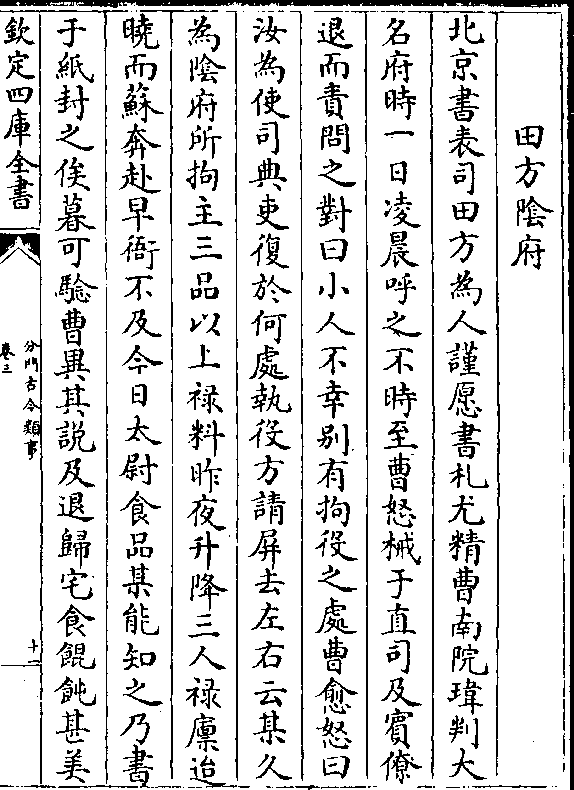 田方陰府
北京書表司田方為人謹愿書札尤精曹南院瑋判大
名府時一日凌晨呼之不時至曹怒械于直司及賓僚
退而責問之對曰小人不幸别有拘役之處曹愈怒曰
汝為使司典吏復於何處執役方請屏去左右云某久
為陰府所拘主三品以上禄料昨夜升降三人禄廪迨
曉而蘇奔赴早衙不及今日太尉食品某能知之乃書
于紙封之俟暮可驗曹異其說及退歸宅食餛飩甚美
欽定四庫全書
分門古今類事
卷三
十一